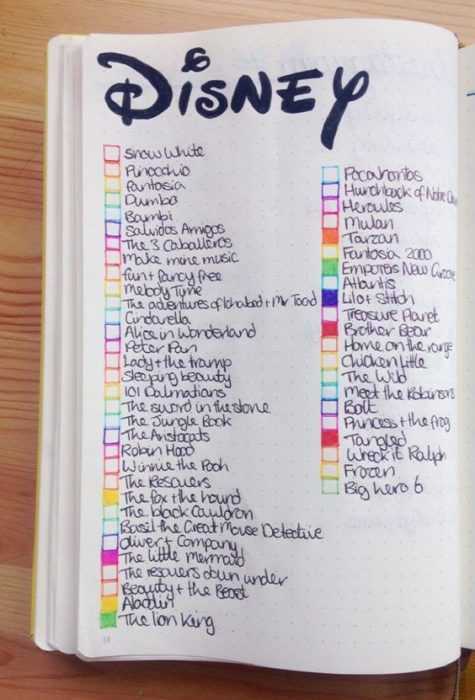 Disney
Snow White
Pinocchio
Fantasia
Dumbo
Bambi
Saludos Amigos
The 3 Caballeros
Make mine music
fun + fancy free
Melody Time
The adventures of Ichabod + Mr Toad
Cindarella
Alice in Wonderland
Peter Pan
Lady + the tramp
Sleeping beauty
101 Dalmatians
The sword in the stone
The Jungle Book
The Aristocats
Robin Hood
Winnie the Pooh
The Rescuers
The fox + the hound
The black Cauldron
Basil the Great Mouse Detective
Oliver + Company
The little mermaid
The rescuers down under
Beauty + the Beast
Aladdin
The lion King
Pocahontas
Hunchback of Notre
Hercules
Mulan
Tarzan
Fantasia 2000
Emporers New Groove
Atlantis
Lilo + Stitch
Treasure Planet
Brother Bear
Home on the range
Chicken little
The Wild
Meet the Robinsons
Bolt
Princess + the frog
Tangled
Wreck it Ralph
Frozen
Big hero 6